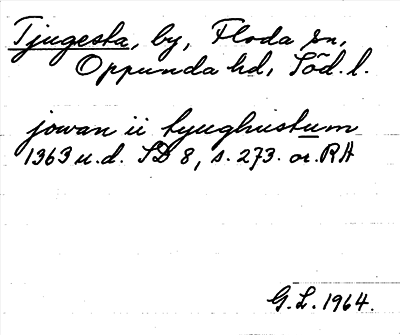 Tjugesta, by, Floda sn,
Oppunda hd, Söd. l.
jowan ii tyughustum
1363 u.d. SD 8, s. 273. or. RA
G.L. 1964.